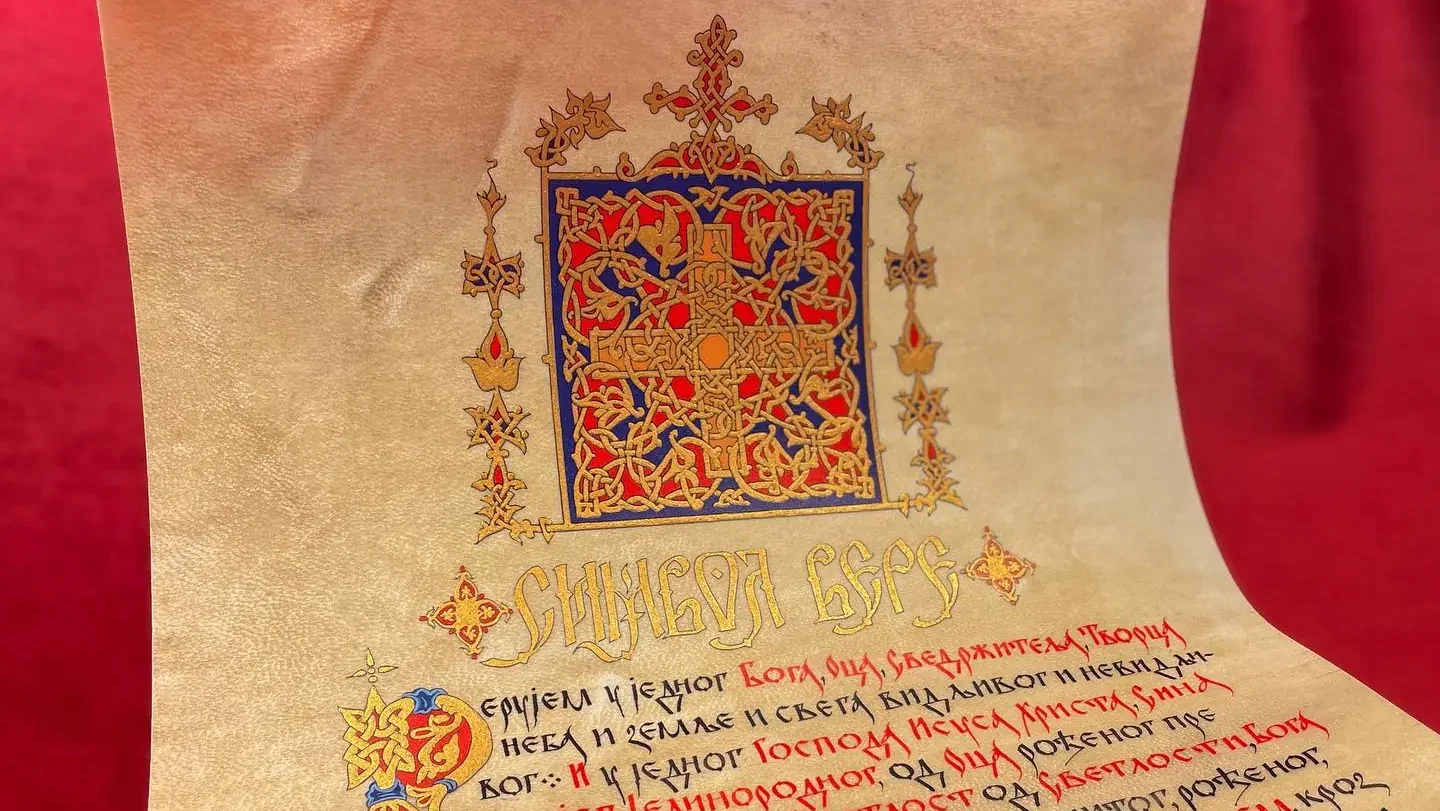 СИМБОЛ ВЕРЕ
Верујем у једног Бога, Оца, Сведржитеља, Творца
неба и земље и свега видљивог и невидљи-
вог·:· И у једног Господа Исуса Христа, Сина
Јединородног, од Оца рођеног пре
Светлост од Светлости, Бога
рођеног,
кроз